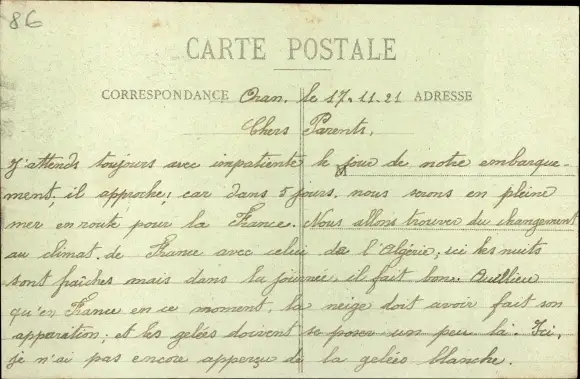 86
CARTE POSTALE
CORRESPONDANCE Oran. le 17.11.21 ADRESSE
Chers Parents,
J'attends toujours avec impatiente le jour de notre embarque-
ment, il approche; car dans 5 jours, nous serons en pleine
mer en route pour la France. Nous allons trouver du changement
au climat de France avec celui de l'Algérie; ici les nuits
sont fraîches mais dans la journée, il fait bon. Auillieu
qu'en France en ce moment, la neige doit avoir fait son
apparition; et les gelées doivent se poser un peu là. Ici,
je n'ai pas encore apperçu de la gelées blanche.